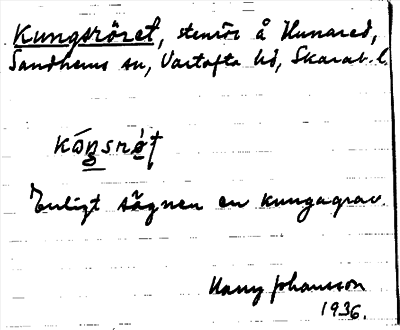 Kungsröret, stenrör å Hunared,
Sandhems sn, Vartofta hd, Skarab. l.
kóŋsrǿt
Enligt sägnen en kungagrav.
Harry Johansson
1936.